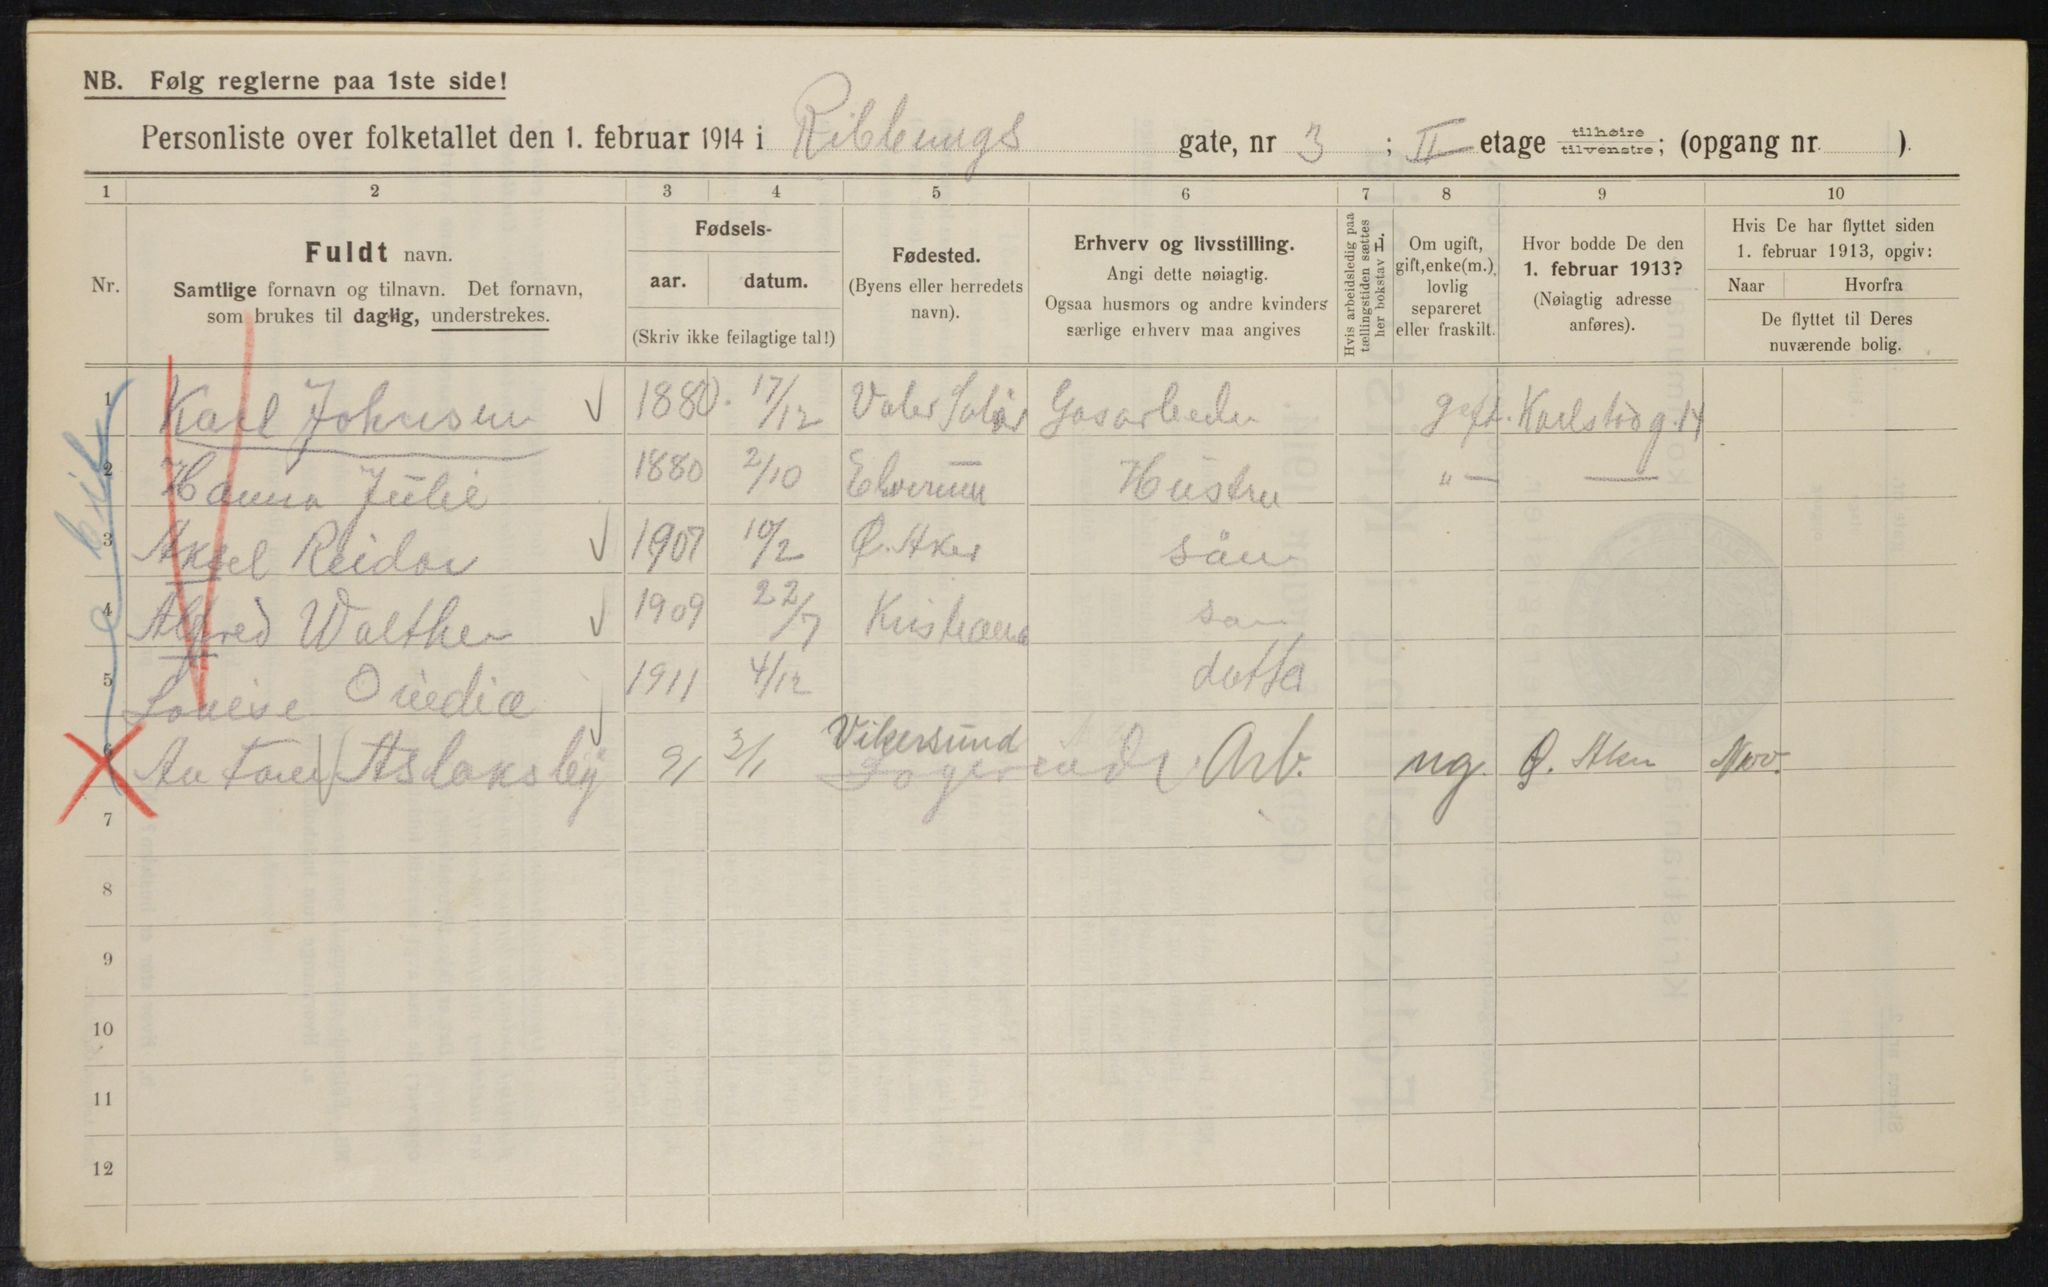 NB. Følg reglerne paa 1ste side!
Personliste over folketallet den 1. februar 1914 i Ribbungs gate, nr 3 ; II etage tilhøire/tilvenstre; (opgang nr )
1 2 3 4 5 6 7 8 9 10
Nr.
Fuldt navn.
Samtlige fornavn og tilnavn. Det fornavn,
som brukes til daglig, understrekes.
Fødsels-
aar. datum.
(Skriv ikke feilagtige tal!)
Fødested.
(Byens eller herredets
navn).
Erhverv og livsstilling.
Angi dette nøiagtig.
Ogsaa husmors og andre kvinders
særlige erhverv maa angives
Hvis arbeidsledig paa
tællingstiden sættes
her bokstav L.
Om ugift,
gift, enke(m.),
lovlig
separeret
eller fraskilt.
Hvor bodde De den
1. februar 1913?
(Nøiagtig adresse
anføres).
Hvis De har flyttet siden
1. februar 1913, opgiv:
Naar Hvorfra
De flyttet til Deres
nuværende bolig.
1 Karl Johnsen 1880. 17/12 Valer Solör Gasarbeider gift. Karlstadg. 14
2 Hanna Julie 1880 2/10 Elverum Hustru " —
3 Aksel Reidar 1907 10/2 Ø. Aker sön
4 Alfred Walther 1909 22/7 Kristiania son
5 Louise Ovedia 1911 4/12 datter
6 Anton Aslaksby 91 3/1 Vikersund Logerende Arb. ug. Ø. Aker Nov.
7
8
9
10
11
12